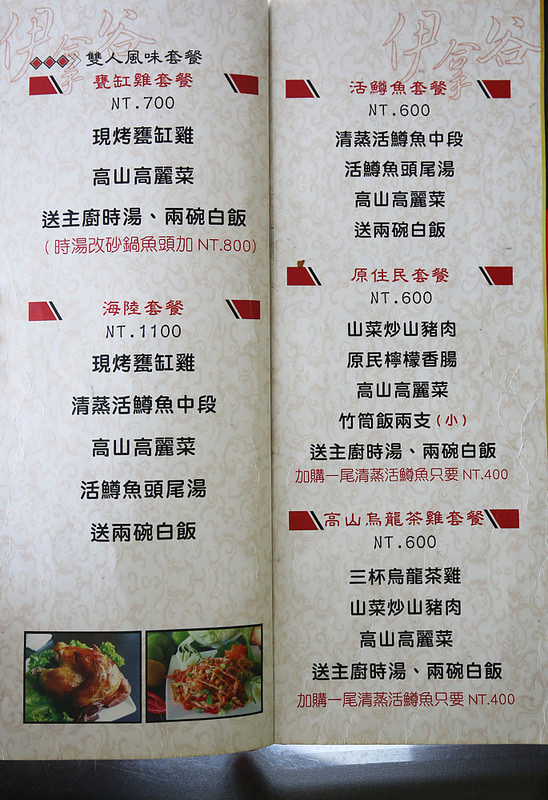 伊拿谷
雙人風味套餐
甕缸雞套餐
NT.700
現烤甕缸雞
高山高麗菜
送主廚時湯、兩碗白飯
(時湯改砂鍋魚頭加NT.800)
海陸套餐
NT.1100
現烤甕缸雞
清蒸活鱒魚中段
高山高麗菜
活鱒魚頭尾湯
送兩碗白飯
伊拿谷
活鱒魚套餐
NT.600
清蒸活鱒魚中段
活鱒魚頭尾湯
高山高麗菜
送兩碗白飯
原住民套餐
NT.600
山菜炒山豬肉
原民檸檬香腸
高山高麗菜
竹筒飯兩支(小)
送主廚時湯、兩碗白飯
加購一尾清蒸活鱒魚只要NT.400
高山烏龍茶雞套餐
NT.600
三杯烏龍茶雞
山菜炒山豬肉
高山高麗菜
送主廚時湯、兩碗白飯
加購一尾清蒸活鱒魚只要NT.400